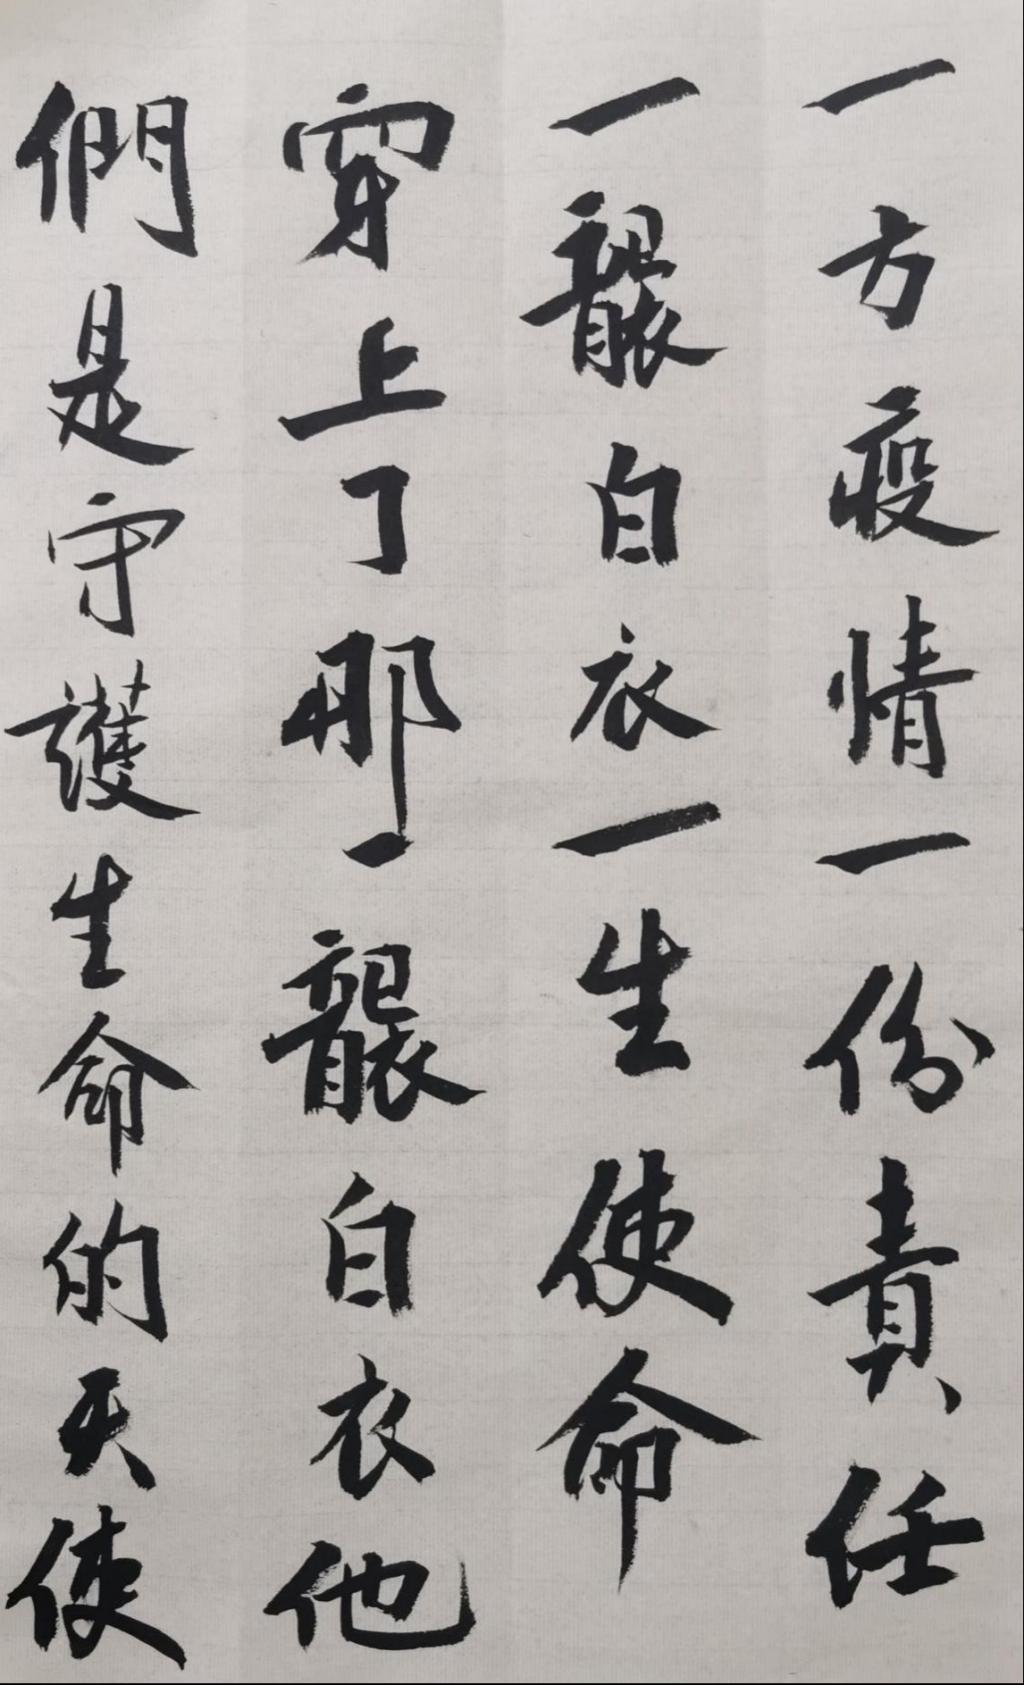 一方疫情一份責任
一襲白衣一生使命
穿上了那一襲白衣他
們是守護生命的天使